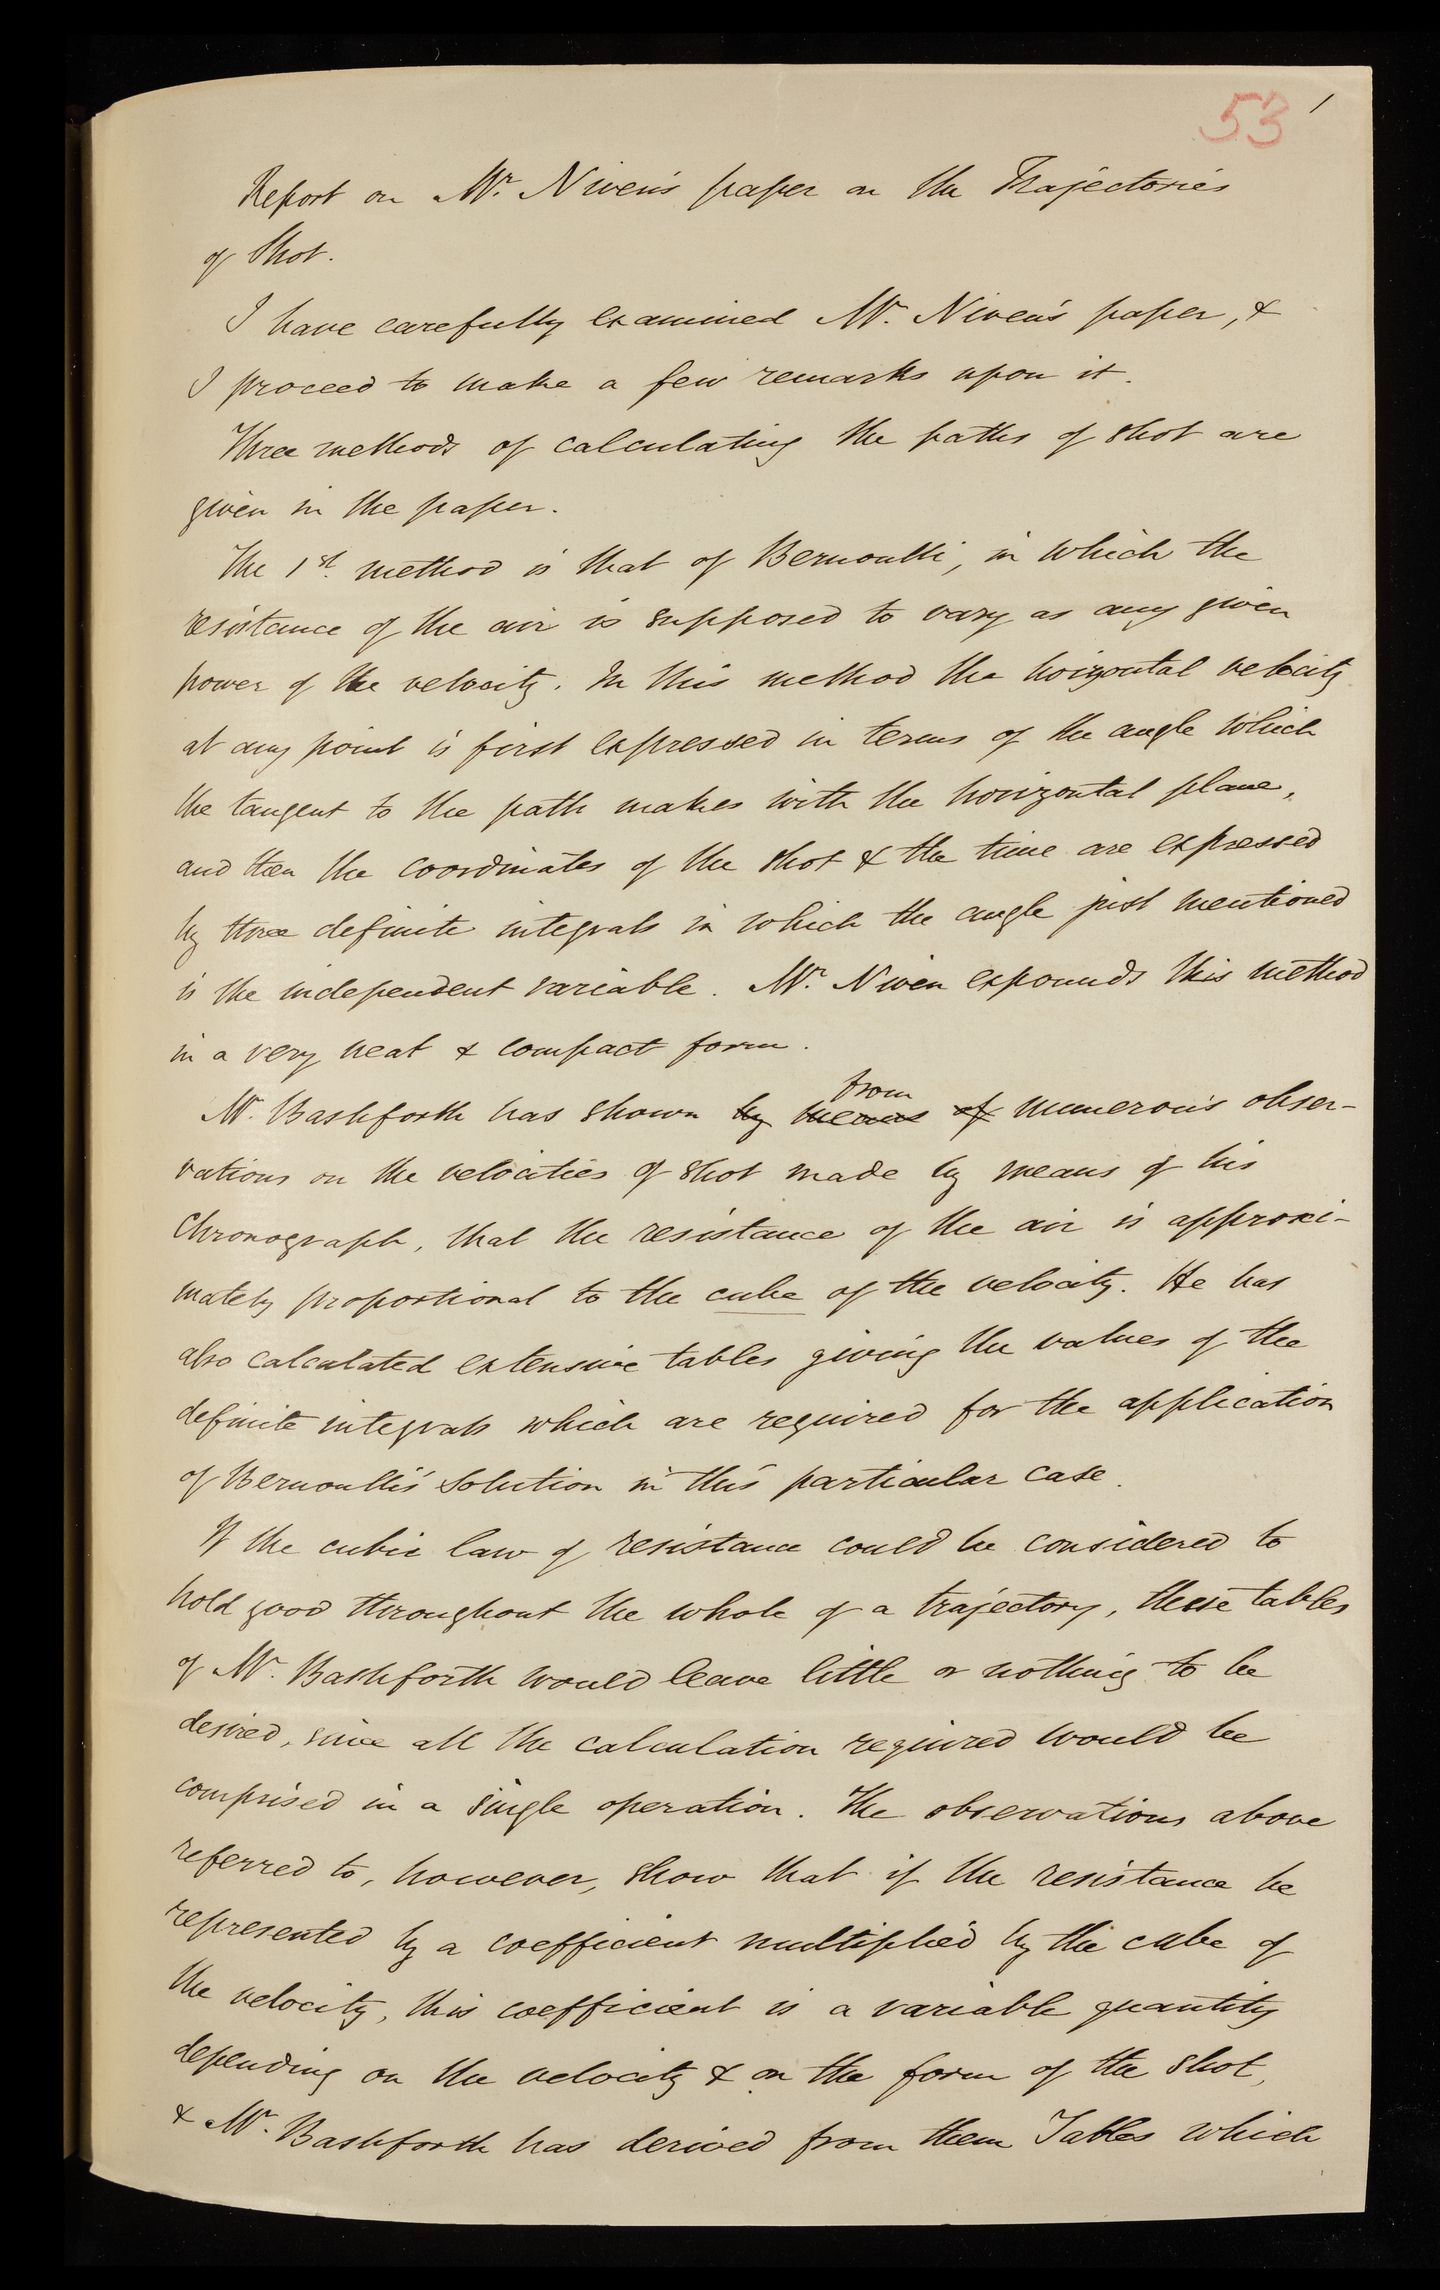 53 1
Report on Mr. Niven's paper on the Trajectories
of Shot.
I have carefully examined Mr. Niven's paper, &
I proceed to make a few remarks upon it.
Three methods of calculating the paths of shot are
given in the paper.
The 1st. method is that of Bernoulli, in which the
resistance of the air is supposed to vary as any given
power of the velocity. In this method the horizontal velocity
at any point is first expressed in terms of the angle which
the tangent to the path makes with the horizontal plane,
and then the coordinates of the shot & the time are expressed
by three definite integrals in which the angle just mentioned
is the independent variable. Mr. Niven expounds this method
in a very neat & compact form.
from
Mr. Bashforth has shown by means of numerous obser-
vations on the velocities of shot made by means of his
Chronograph, that the resistance of the air is approxi-
mately proportional to the cube of the velocity. He has
also calculated extensive tables giving the values of the
definite integrals which are required for the application
of Bernoulli's solution in this particular case.
If the cubic law of resistance could be considered to
hold good throughout the whole of a trajectory, these tables
of Mr. Bashforth would leave little or nothing to be
desired, since all the calculation required would be
comprised in a single operation. The observations above
referred to, however, show that if the resistance be
represented by a coefficient multiplied by the cube of
the velocity, this coefficient is a variable quantity
depending on the velocity & on the form of the shot,
& Mr. Bashforth has derived from them Tables which